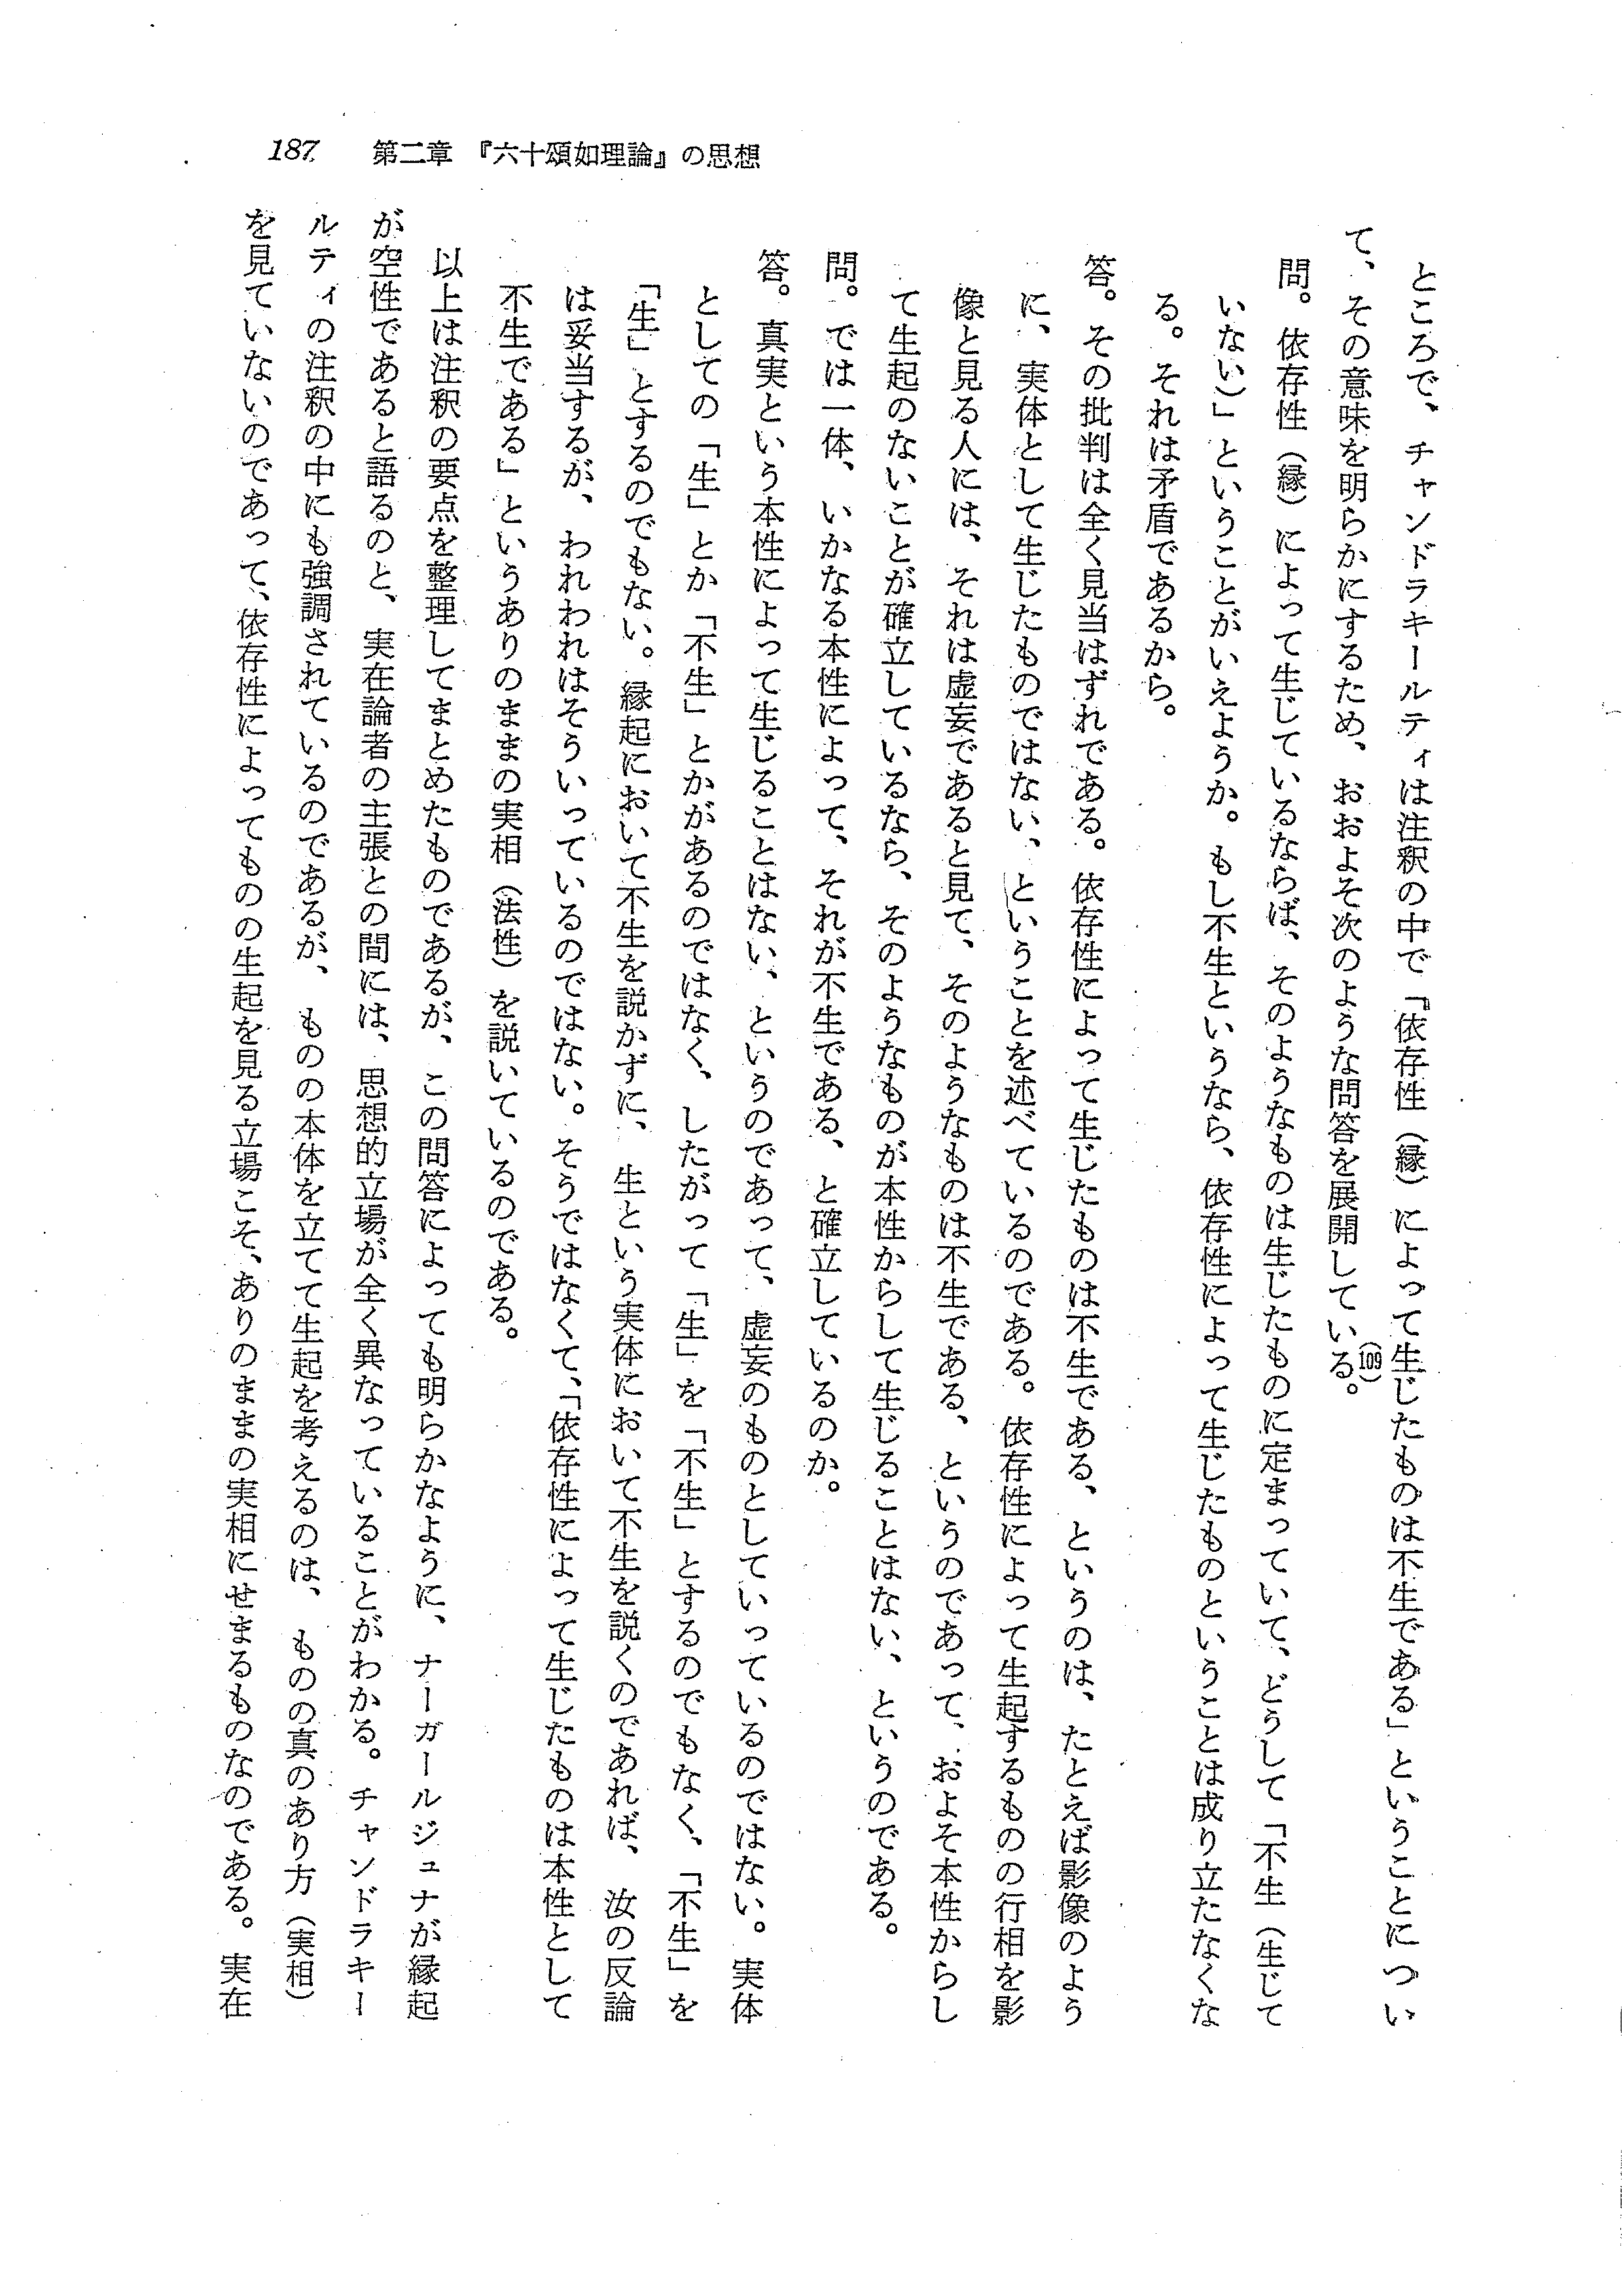 187　第二章　『六十頌如理論』の思想
ところで、チャンドラキールティは注釈の中で「『依存性（縁）によって生じたものは不生である」ということについ
て、その意味を明らかにするため、おおよそ次のような問答を展開している。(109)
問。依存性（縁）によって生じているならば、そのようなものは生じたものに定まっていて、どうして「不生（生じて
いない）」ということがいえようか。もし不生というなら、依存性によって生じたものということは成り立たなくな
る。それは矛盾であるから。
答。その批判は全く見当はずれである。依存性によって生じたものは不生である、というのは、たとえば影像のよう
に、実体として生じたものではない、ということを述べているのである。依存性によって生起するものの行相を影
像と見る人には、それは虚妄であると見て、そのようなものは不生である、というのであって、およそ本性からし
て生起のないことが確立しているなら、そのようなものが本性からして生じることはない、というのである。
問。では一体、いかなる本性によって、それが不生である、と確立しているのか。
答。真実という本性によって生じることはない、というのであって、虚妄のものとしていっているのではない。実体
としての「生」とか「不生」とかがあるのではなく、したがって「生」を「不生」とするのでもなく、「不生」を
「生」とするのでもない。縁起において不生を説かずに、生という実体において不生を説くのであれば、汝の反論
は妥当するが、われわれはそういっているのではない。そうではなくて、「依存性によって生じたものは本性として
不生である」というありのままの実相（法性）を説いているのである。
以上は注釈の要点を整理してまとめたものであるが、この問答によっても明らかなように、ナーガールジュナが縁起
が空性であると語るのと、実在論者の主張との間には、思想的立場が全く異なっていることがわかる。チャンドラキー
ルティの注釈の中にも強調されているのであるが、ものの本体を立てて生起を考えるのは、ものの真のあり方（実相）
を見ていないのであって、依存性によってものの生起を見る立場こそ、ありのままの実相にせまるものなのである。実在